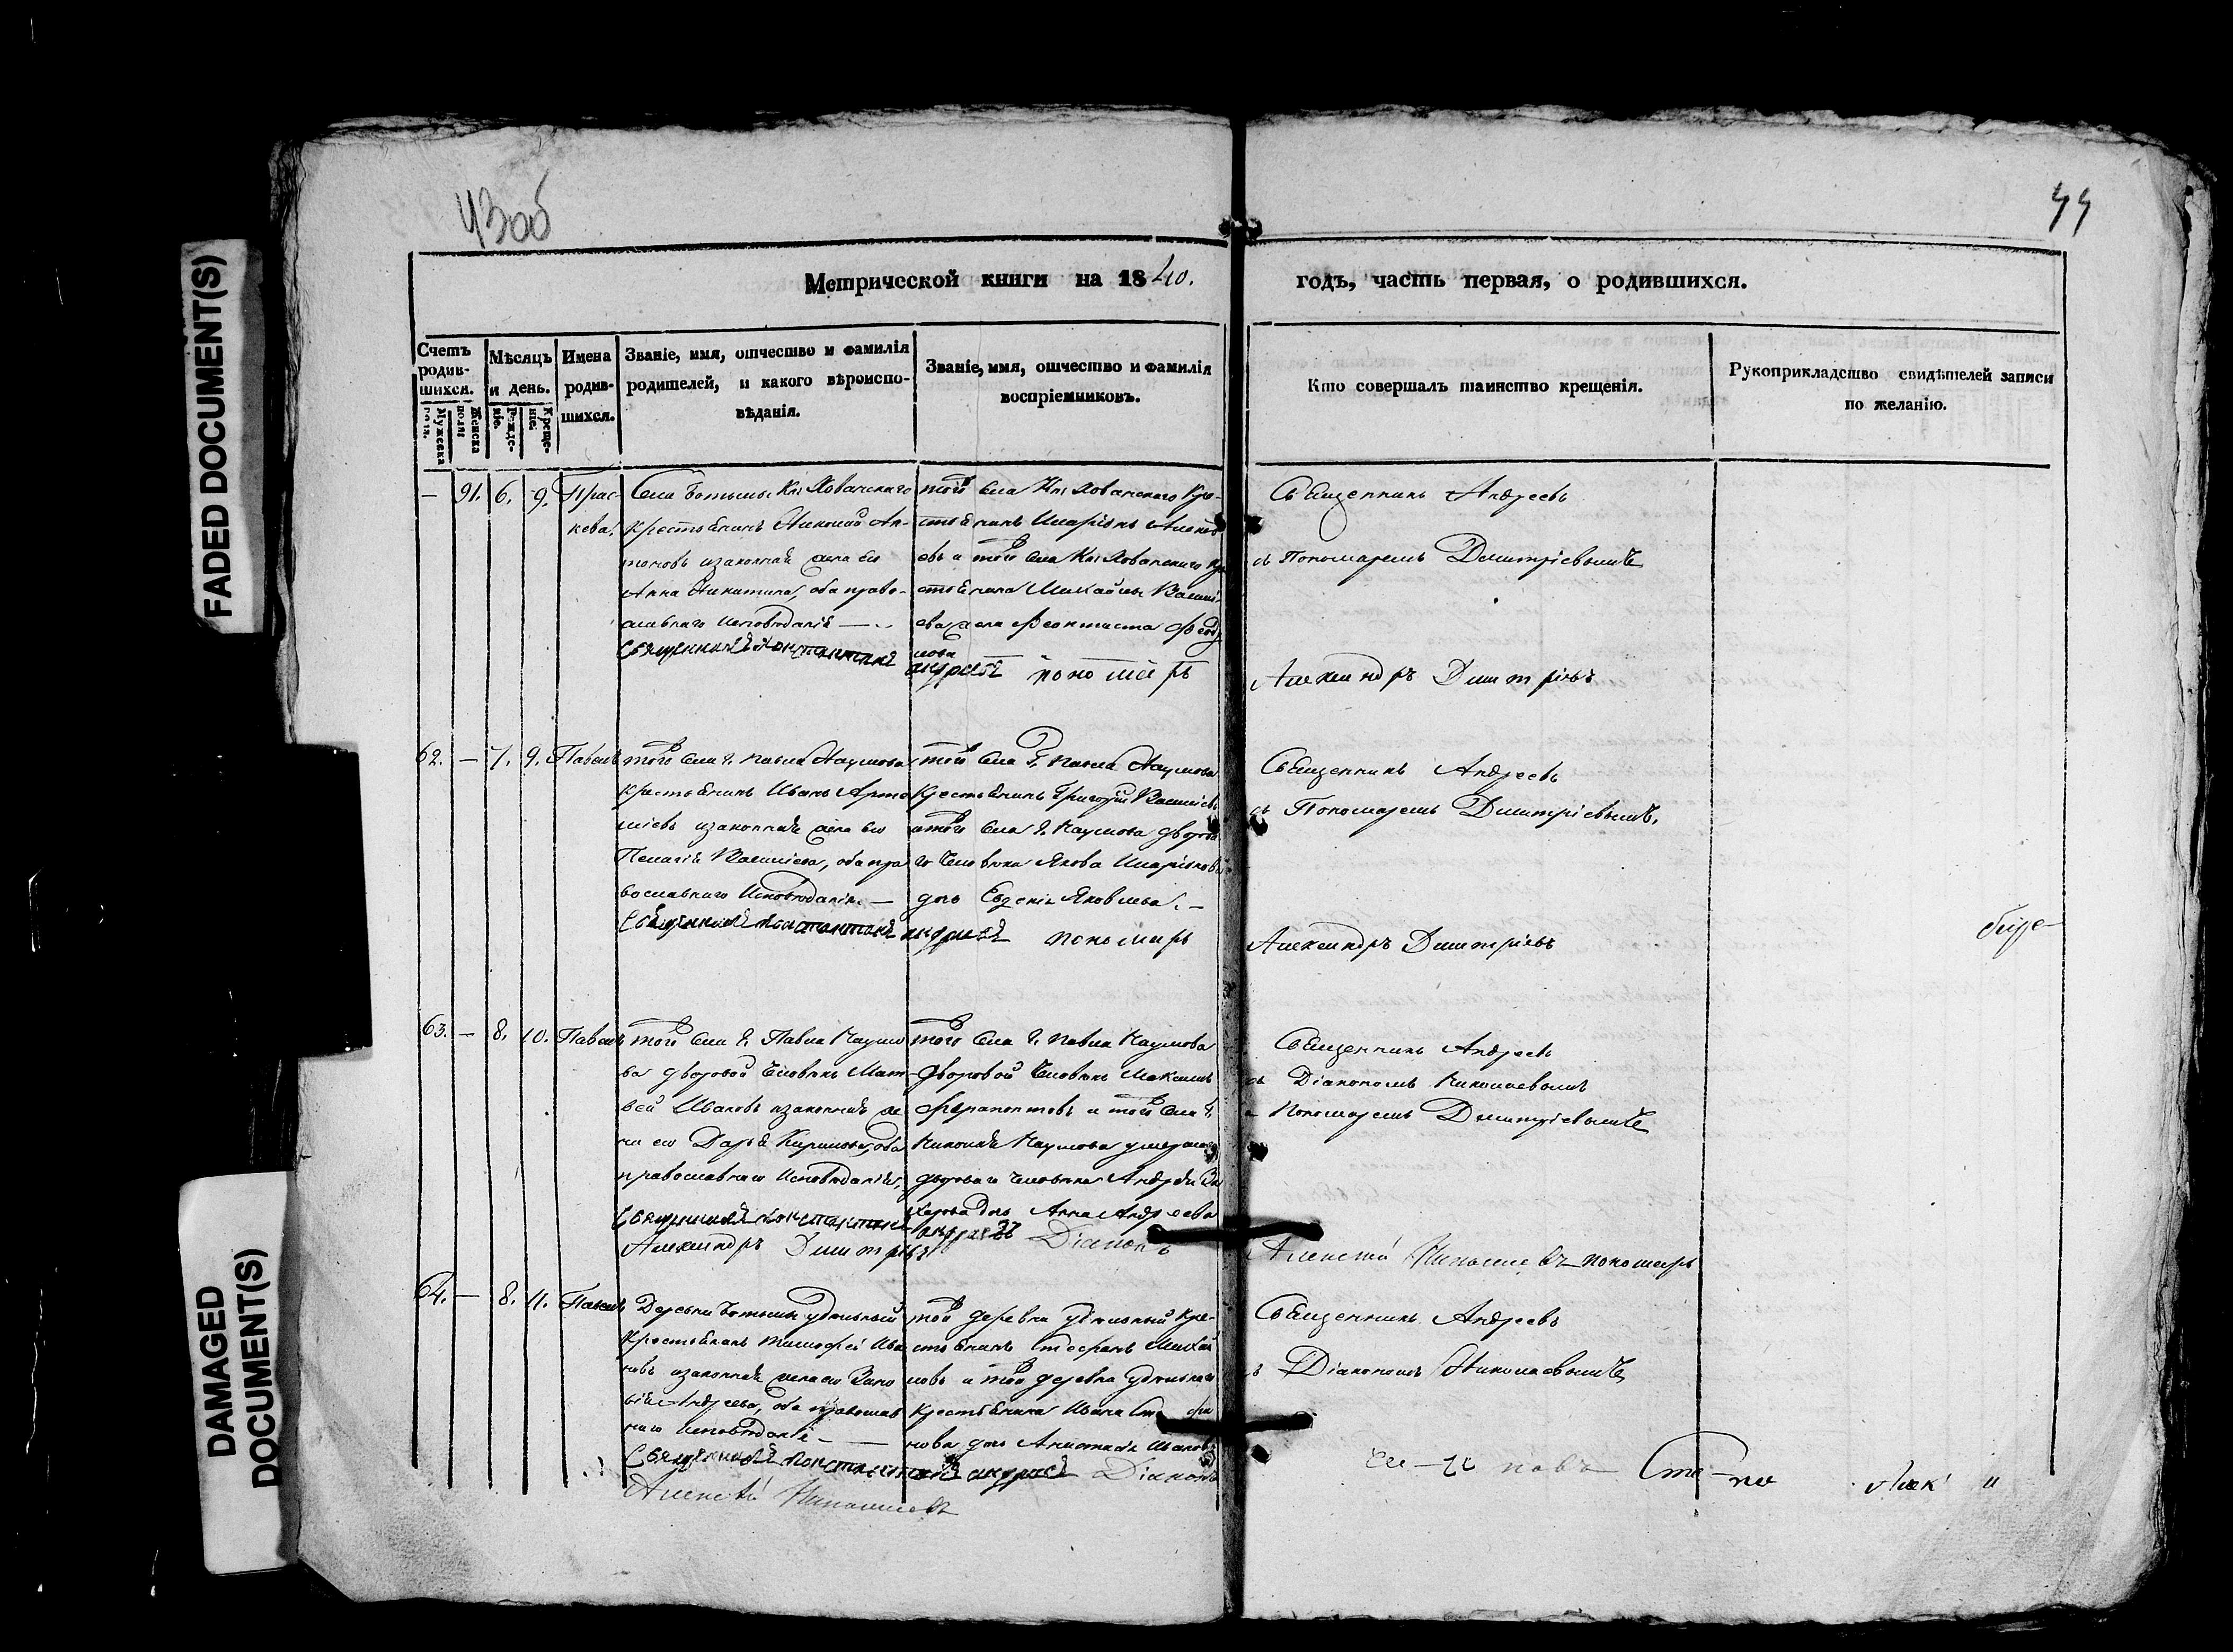 FADED DOCUMENT(S)
DAMAGED
DOCUMENT(S)
43об
44
Метрической книги на 1840.
годъ, часть первая, о родившихся.
Счетъ родив-шихся.
Мужеска пола.
Женска пола.
Мѣсяцъ и день.
Рожде-нiе.
Креще-нiе.
Имена родив-шихся.
Званіе, имя, отчество и фамилія
родителей, и какого вѣроиспо-
вѣданія.
Званіе, имя, отчество и фамилія
воспріемниковъ.
Кто совершалъ таинство крещенія.
Рукоприкладство свидѣтелей записи
по желанію.
— 91. 6. 9. Прас-
кева.
Села Ботьмы Кн: Хованскаго
крестьянинъ Николай Ан-
тоновъ и законная жена его
Анна Никитина, оба право-
славнаго исповѣданія —
Священникъ Константинъ
того села Кн: Хованскаго кре-
стьянинъ Иларіонъ Алексѣ
евъ и того села Кн: Хованскаго кр
стьянина Михайлы Васильи
ева жена Феоктиста Федо
това
Андреевъ пономарь
Священникъ Андреевъ
съ Пономаремъ Димитріевымъ
Александръ Димитріевъ
62. — 7. 9. Павелъ
того села Г. Павла Наумова
крестьянинъ Иванъ Арте
міевъ и законная жена его
Пелагія Васильева, оба пра
вославнаго исповѣданія. —
Священникъ Константинъ
того села Г. Павла Наумова
крестьянинъ Григорій Васильевъ
и того села Г. Наумова дворова
го человѣка Якова Иларіонова
дочь Евгенія Яковлева. —
Андреевъ пономарь
Священникъ Андреевъ
съ Пономаремъ Димитріевымъ.
Александръ Димитріевъ
63. — 8. 10. Павелъ
того села Г. Павла Наумо
ва дворовой человѣкъ Мат-
вей Ивановъ и законная же
на его Дарья Кирилова, оба
православнаго исповѣданія,
Священникъ Константинъ
Александръ Димитріевъ
того села Г. Павла Наумова
дворовой человѣкъ Максимъ
Ферапонтовъ и того села Г.
Николая Наумова умершаго
двороваго человѣка Андрея За
харова дочь Анна Андреева
Андреевъ Діаконъ
Священникъ Андреевъ
съ Діакономъ Николаевымъ
и Пономаремъ Димитріевымъ
Алексѣй Николаевъ пономарь
64. — 8. 11. Павелъ
Деревни Ботьмы удѣльный
крестьянинъ Тимофей Ива
новъ и законная жена его Зино
вія Андреева, оба православ
наго исповѣданія —
Священникъ Константинъ
Алексѣй Николаевъ
той деревни удѣльный кре-
стьянинъ Стефанъ Михай
ловъ и той деревни удѣльнаго
крестьянина Ивана Сте фа
нова дочь Анастасія Иванова
Андреевъ Діаконъ
Священникъ Андреевъ
съ Діакономъ Николаевымъ